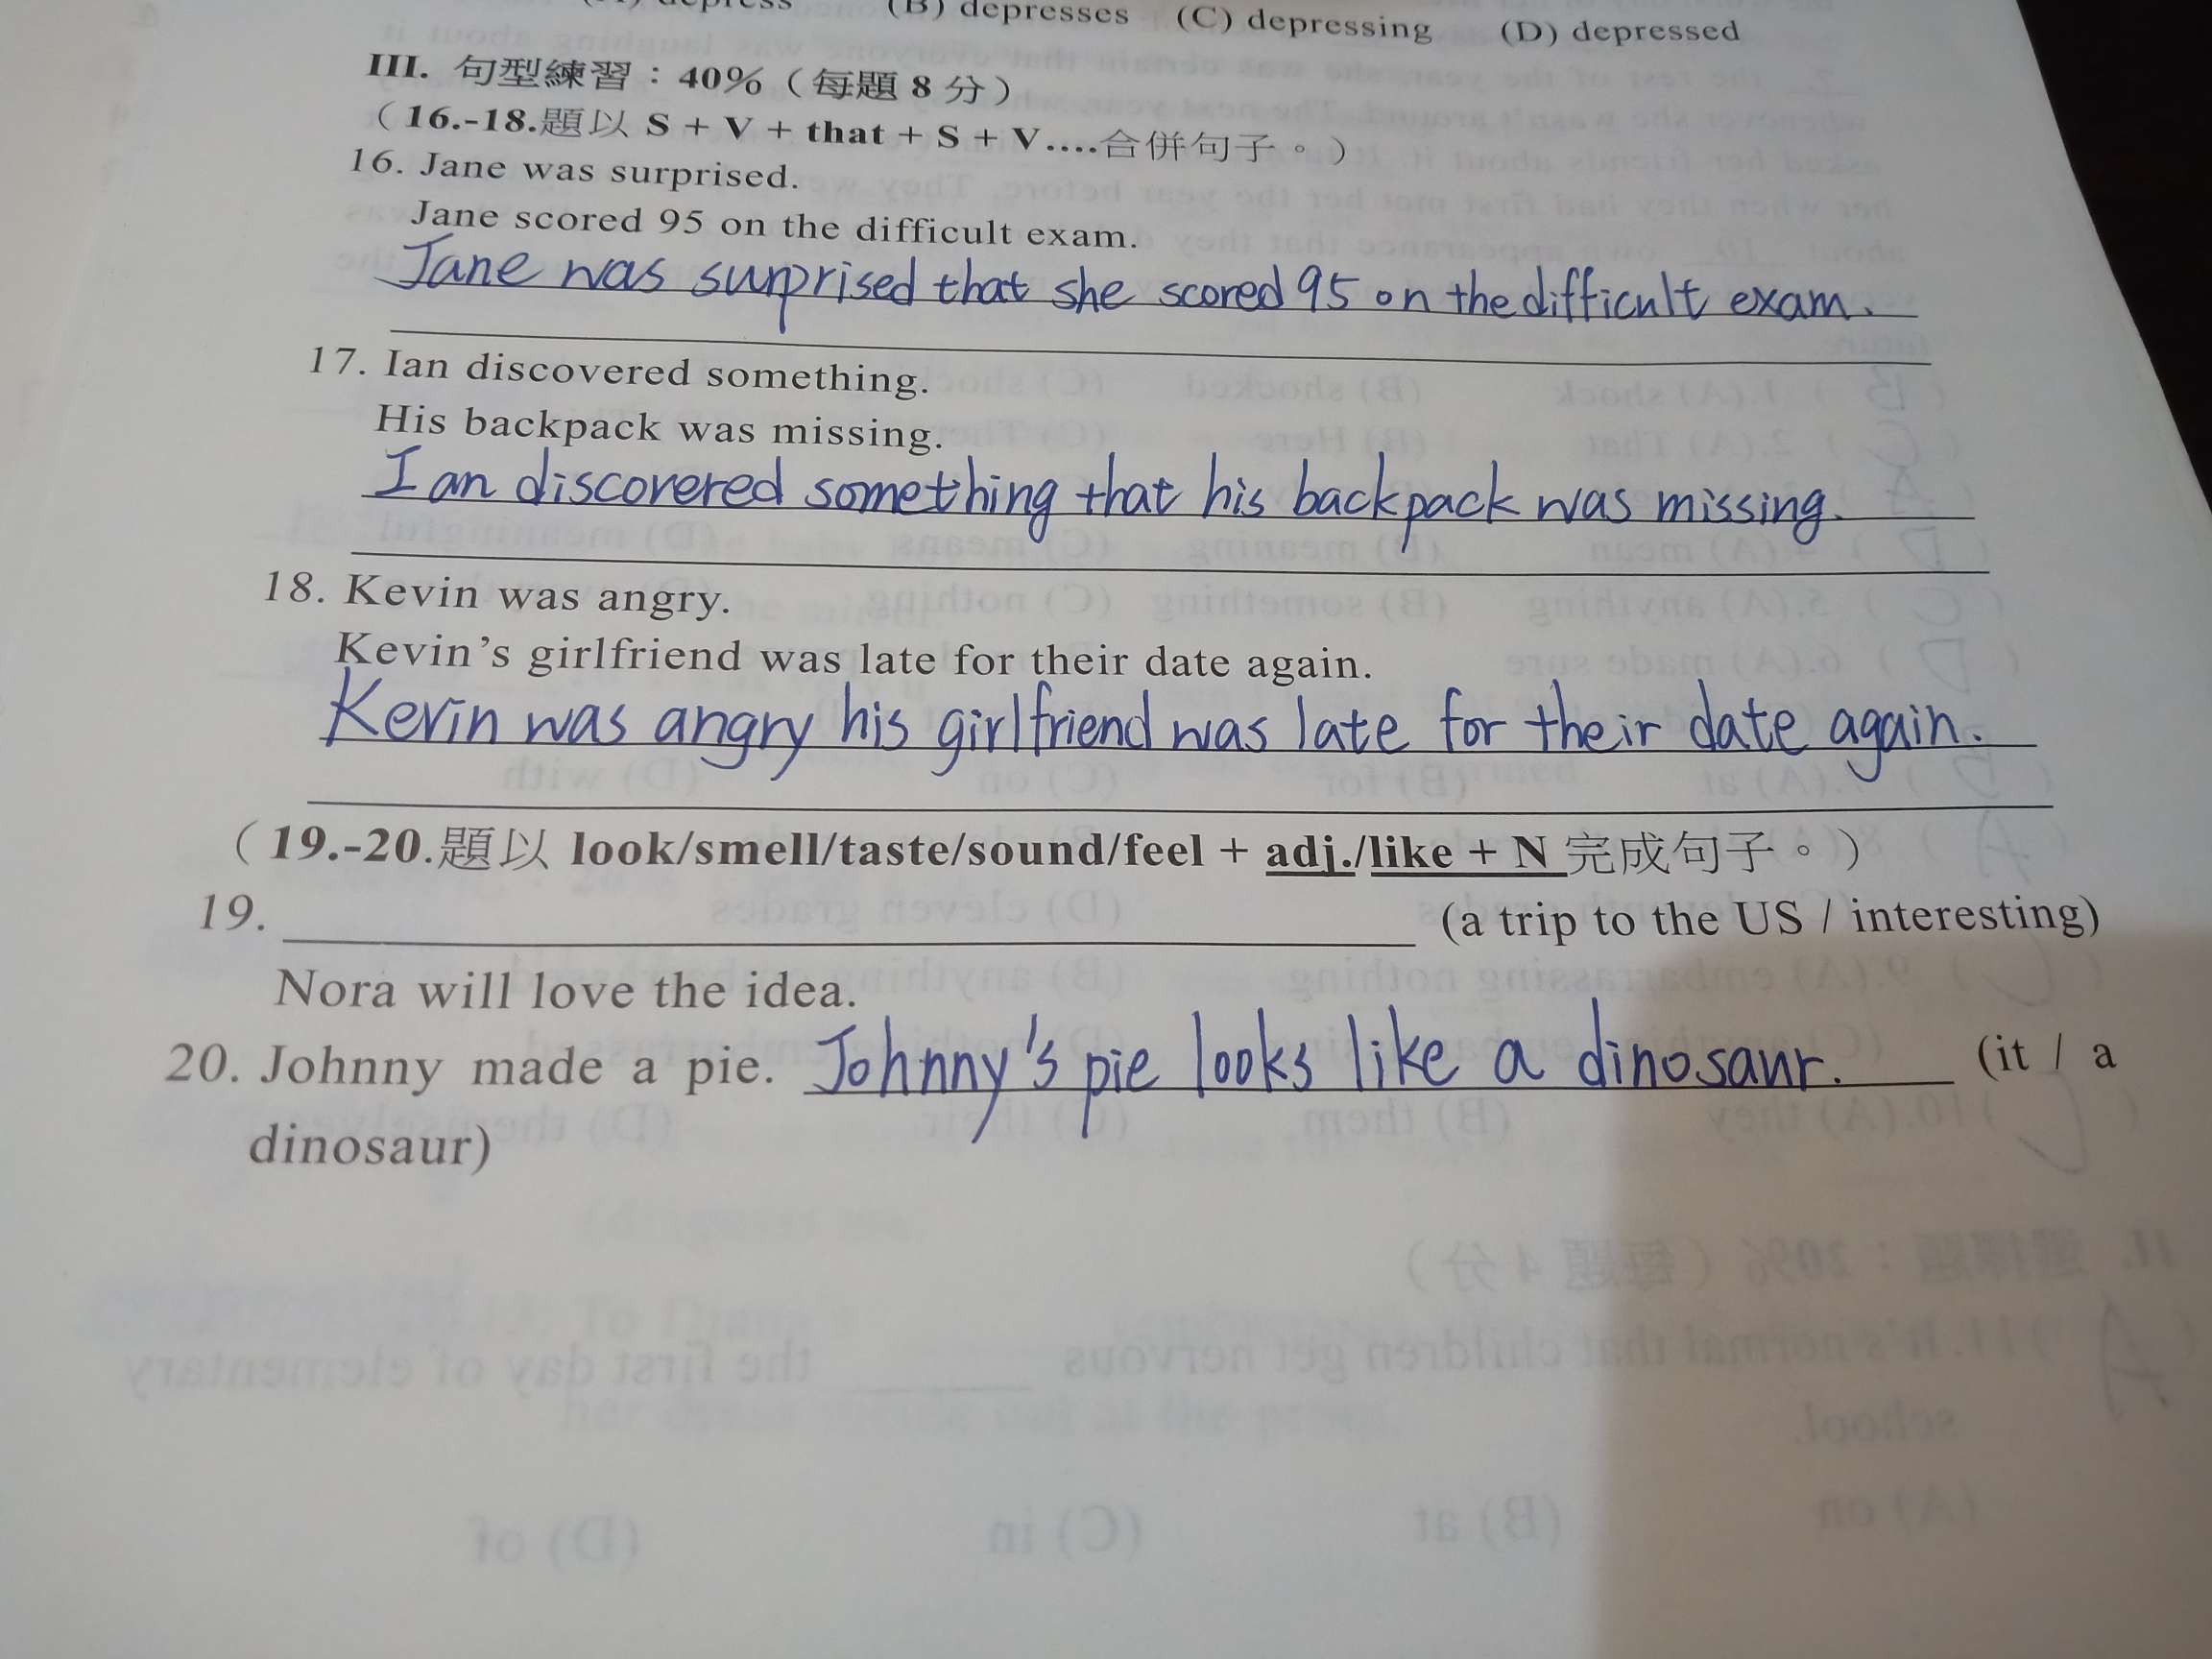 (B) depresses (C) depressing (D) depressed
III. 句型練習：40%（每題 8 分）
（16.-18.題以 S + V + that + S + V....合併句子。）
16. Jane was surprised.
Jane scored 95 on the difficult exam.
Jane was surprised that she scored 95 on the difficult exam.
17. Ian discovered something.
His backpack was missing.
Ian discovered something that his backpack was missing.
18. Kevin was angry.
Kevin's girlfriend was late for their date again.
Kevin was angry his girlfriend was late for their date again.
（19.-20.題以 look/smell/taste/sound/feel + adj./like + N 完成句子。）
19. (a trip to the US / interesting)
Nora will love the idea.
20. Johnny made a pie. Johnny's pie looks like a dinosaur. (it / a
dinosaur)